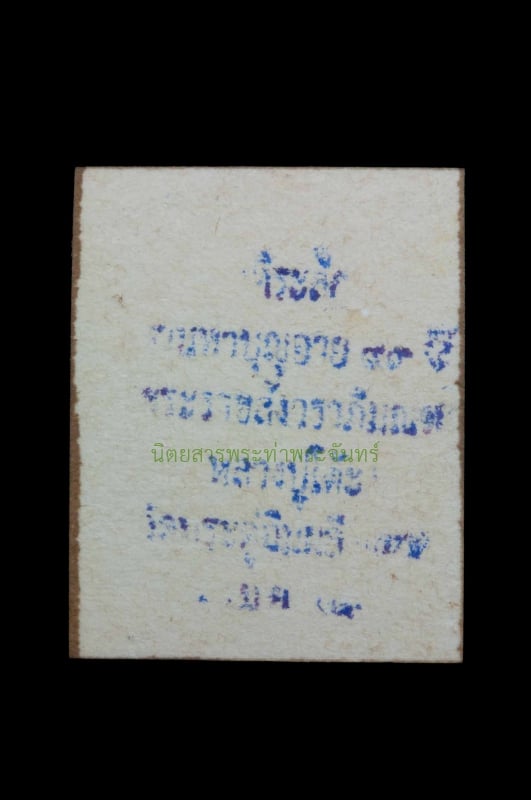 ที่ระลึก
งานทำบุญอายุ ๙๐ ปี
พระราชสังวราภิมณฑ์
นิตยสารพระท่าพระจันทร์
หลวงปู่โต๊ะ
วัดประดู่ฉิมพลี